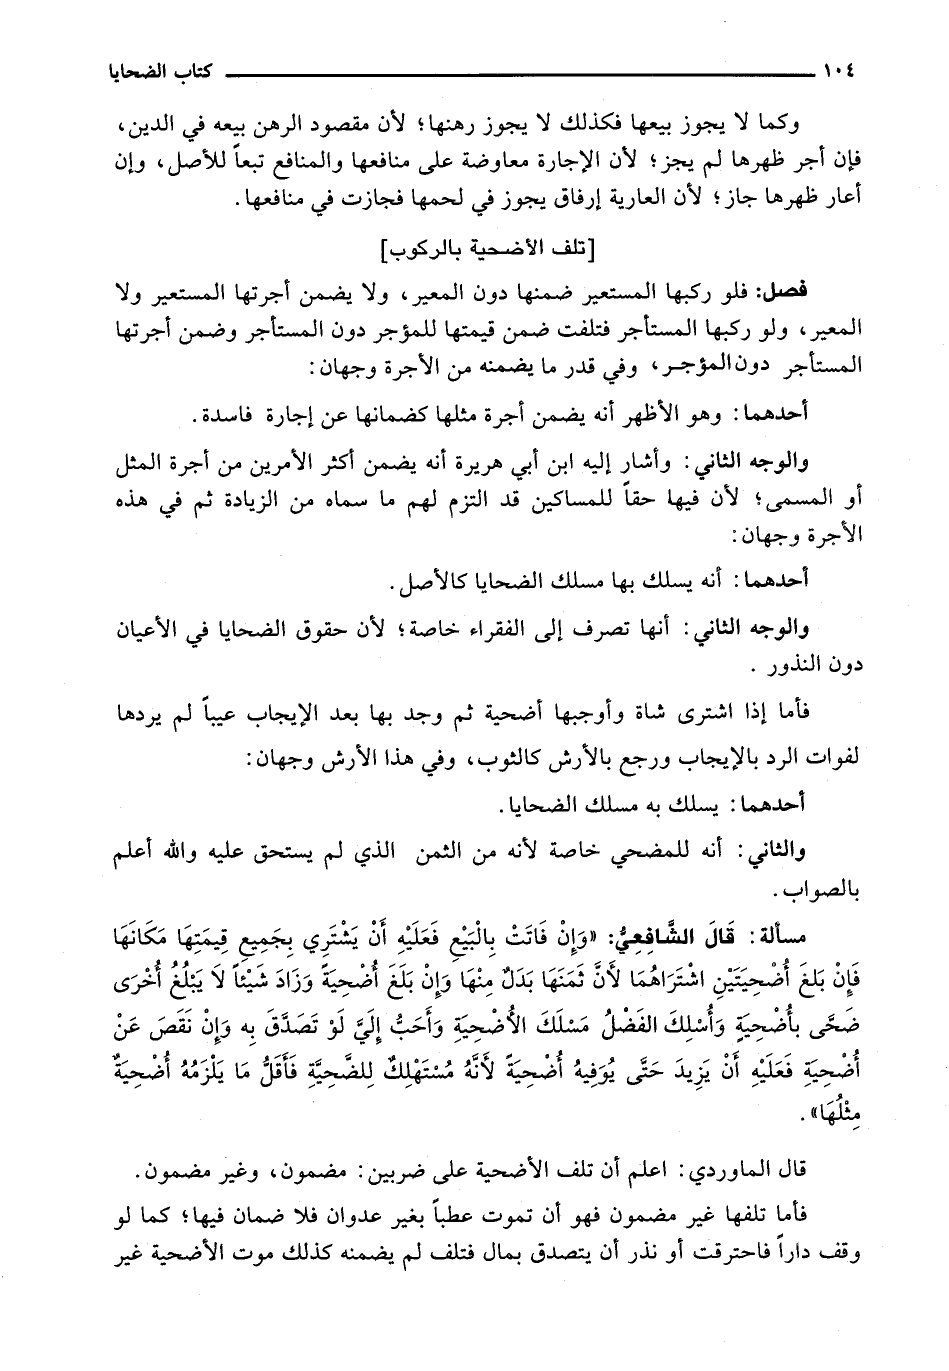 ١٠٤ كتاب الضحايا
وكما لا يجوز بيعها فكذلك لا يجوز رهنها؛ لأن مقصود الرهن بيعه في الدين،
فإن أجر ظهرها لم يجز؛ لأن الإجارة معاوضة على منافعها والمنافع تبعاً للأصل، وإن
أعار ظهرها جاز؛ لأن العارية إرفاق يجوز في لحمها فجازت في منافعها.
[تلف الأضحية بالركوب]
فصل: فلو ركبها المستعير ضمنها دون المعير، ولا يضمن أجرتها المستعير ولا
المعير، ولو ركبها المستأجر فتلفت ضمن قيمتها للمؤجر دون المستأجر وضمن أجرتها
المستأجر دون المؤجر، وفي قدر ما يضمنه من الأجرة وجهان:
أحدهما: وهو الأظهر أنه يضمن أجرة مثلها كضمانها عن إجارة فاسدة.
والوجه الثاني: وأشار إليه ابن أبي هريرة أنه يضمن أكثر الأمرين من أجرة المثل
أو المسمى؛ لأن فيها حقاً للمساكين قد التزم لهم ما سماه من الزيادة ثم في هذه
الأجرة وجهان:
أحدهما: أنه يسلك بها مسلك الضحايا كالأصل.
والوجه الثاني: أنها تصرف إلى الفقراء خاصة؛ لأن حقوق الضحايا في الأعيان
دون النذور.
فأما إذا اشترى شاة وأوجبها أضحية ثم وجد بها بعد الإيجاب عيباً لم يردها
لفوات الرد بالإيجاب ورجع بالأرش كالثوب، وفي هذا الأرش وجهان:
أحدهما: يسلك به مسلك الضحايا.
والثاني: أنه للمضحي خاصة لأنه من الثمن الذي لم يستحق عليه والله أعلم
بالصواب.
مسألة: قَالَ الشَّافِعِيُّ: «وَإِنْ فَاتَتْ بِالْبَيْعِ فَعَلَيْهِ أَنْ يَشْتَرِي بِجَمِيعِ قِيمَتِهَا مَكَانَهَا
فَإِنْ بَلَغَ أُضْحِيَتَيْنِ اشْتَرَاهُمَا لأَنَّ ثَمَنَهَا بَدَلٌ مِنْهَا وَإِنْ بَلَغَ أُضْحِيَةً وَزَادَ شَيْئاً لَا يَبْلُغُ أُخْرَى
ضَحَّى بِأُضْحِيَةٍ وَأَسْلِكَ الفَضْلُ مَسْلَكَ الأُضْحِيَةِ وَأَحَبُّ إِلَيَّ لَوْ تَصَدَّقَ بِهِ وَإِنْ نَقَصَ عَنْ
أُضْحِيَةٍ فَعَلَيْهِ أَنْ يَزِيدَ حَتَّى يُوَفِيهُ أُضْحِيَةً لأَنَّهُ مُسْتَهْلِكٌ لِلضَّحِيَّةِ فَأَقَلُّ مَا يَلْزَمُهُ أُضْحِيَةٌ
مِثْلُهَا».
قال الماوردي: اعلم أن تلف الأضحية على ضربين: مضمون، وغير مضمون.
فأما تلفها غير مضمون فهو أن تموت عطباً بغير عدوان فلا ضمان فيها؛ كما لو
وقف داراً فاحترقت أو نذر أن يتصدق بمال فتلف لم يضمنه كذلك موت الأضحية غير